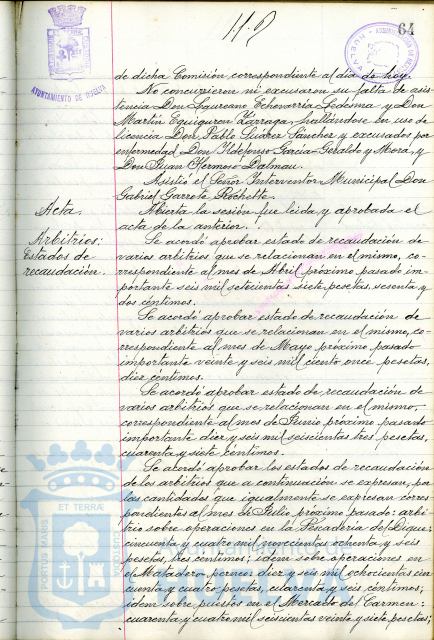 64
AYUNTAMIENTO DE HUELVA
de dicha Comisión correspondiente al día de hoy.
No concurrieron ni excusaron su falta de asis-
tencia Don Laureano Echevarría Ledesma y Don
Martín Eguiguren Azaraga, hallándose en uso de
licencia Don Pablo Suárez Sánchez y excusados por
enfermedad Don Ildefonso García-Geraldo y Mora, y
Don Juan Hermoso Dalmau.
Asistió el Señor Interventor Municipal Don
Gabriel Garrote Rochette.
Acta.
Abierta la sesión fue leída y aprobada el
acta de la anterior.
Arbitrios:
Estados de
recaudación.
Se acordó aprobar estado de recaudación de
varios arbitrios que se relacionan en el mismo, co-
rrespondiente al mes de Abril próximo pasado im-
portante seis mil setecientas siete pesetas, sesenta y
dos céntimos.
Se acordó aprobar estado de recaudación de
varios arbitrios que se relacionan en el mismo, co-
rrespondiente al mes de Mayo próximo pasado
importante veinte y seis mil ciento once pesetas,
diez céntimos.
Se acordó aprobar estado de recaudación de
varios arbitrios que se relacionan en el mismo,
correspondiente al mes de Junio próximo pasado
importante diez y seis mil seiscientas tres pesetas,
cuarenta y siete céntimos.
Se acordó aprobar los estados de recaudación
de los arbitrios que a continuación se expresan, por
las cantidades que igualmente se expresan corres-
pondientes al mes de Julio próximo pasado: arbi-
trio sobre operaciones en la Pescadería del Dique;
cincuenta y cuatro mil novecientas ochenta y seis
pesetas, tres céntimos; idem sobre operaciones en
el Matadero, perneo, diez y seis mil ochocientas cin-
cuenta y cuatro pesetas, cuarenta y seis céntimos;
idem sobre puestos en el Mercado del Carmen;
cuarenta y cuatro mil seiscientas veinte y siete pesetas;
PORTUS MARIS ET TERRAE CUSTODIA
Ayuntamiento de